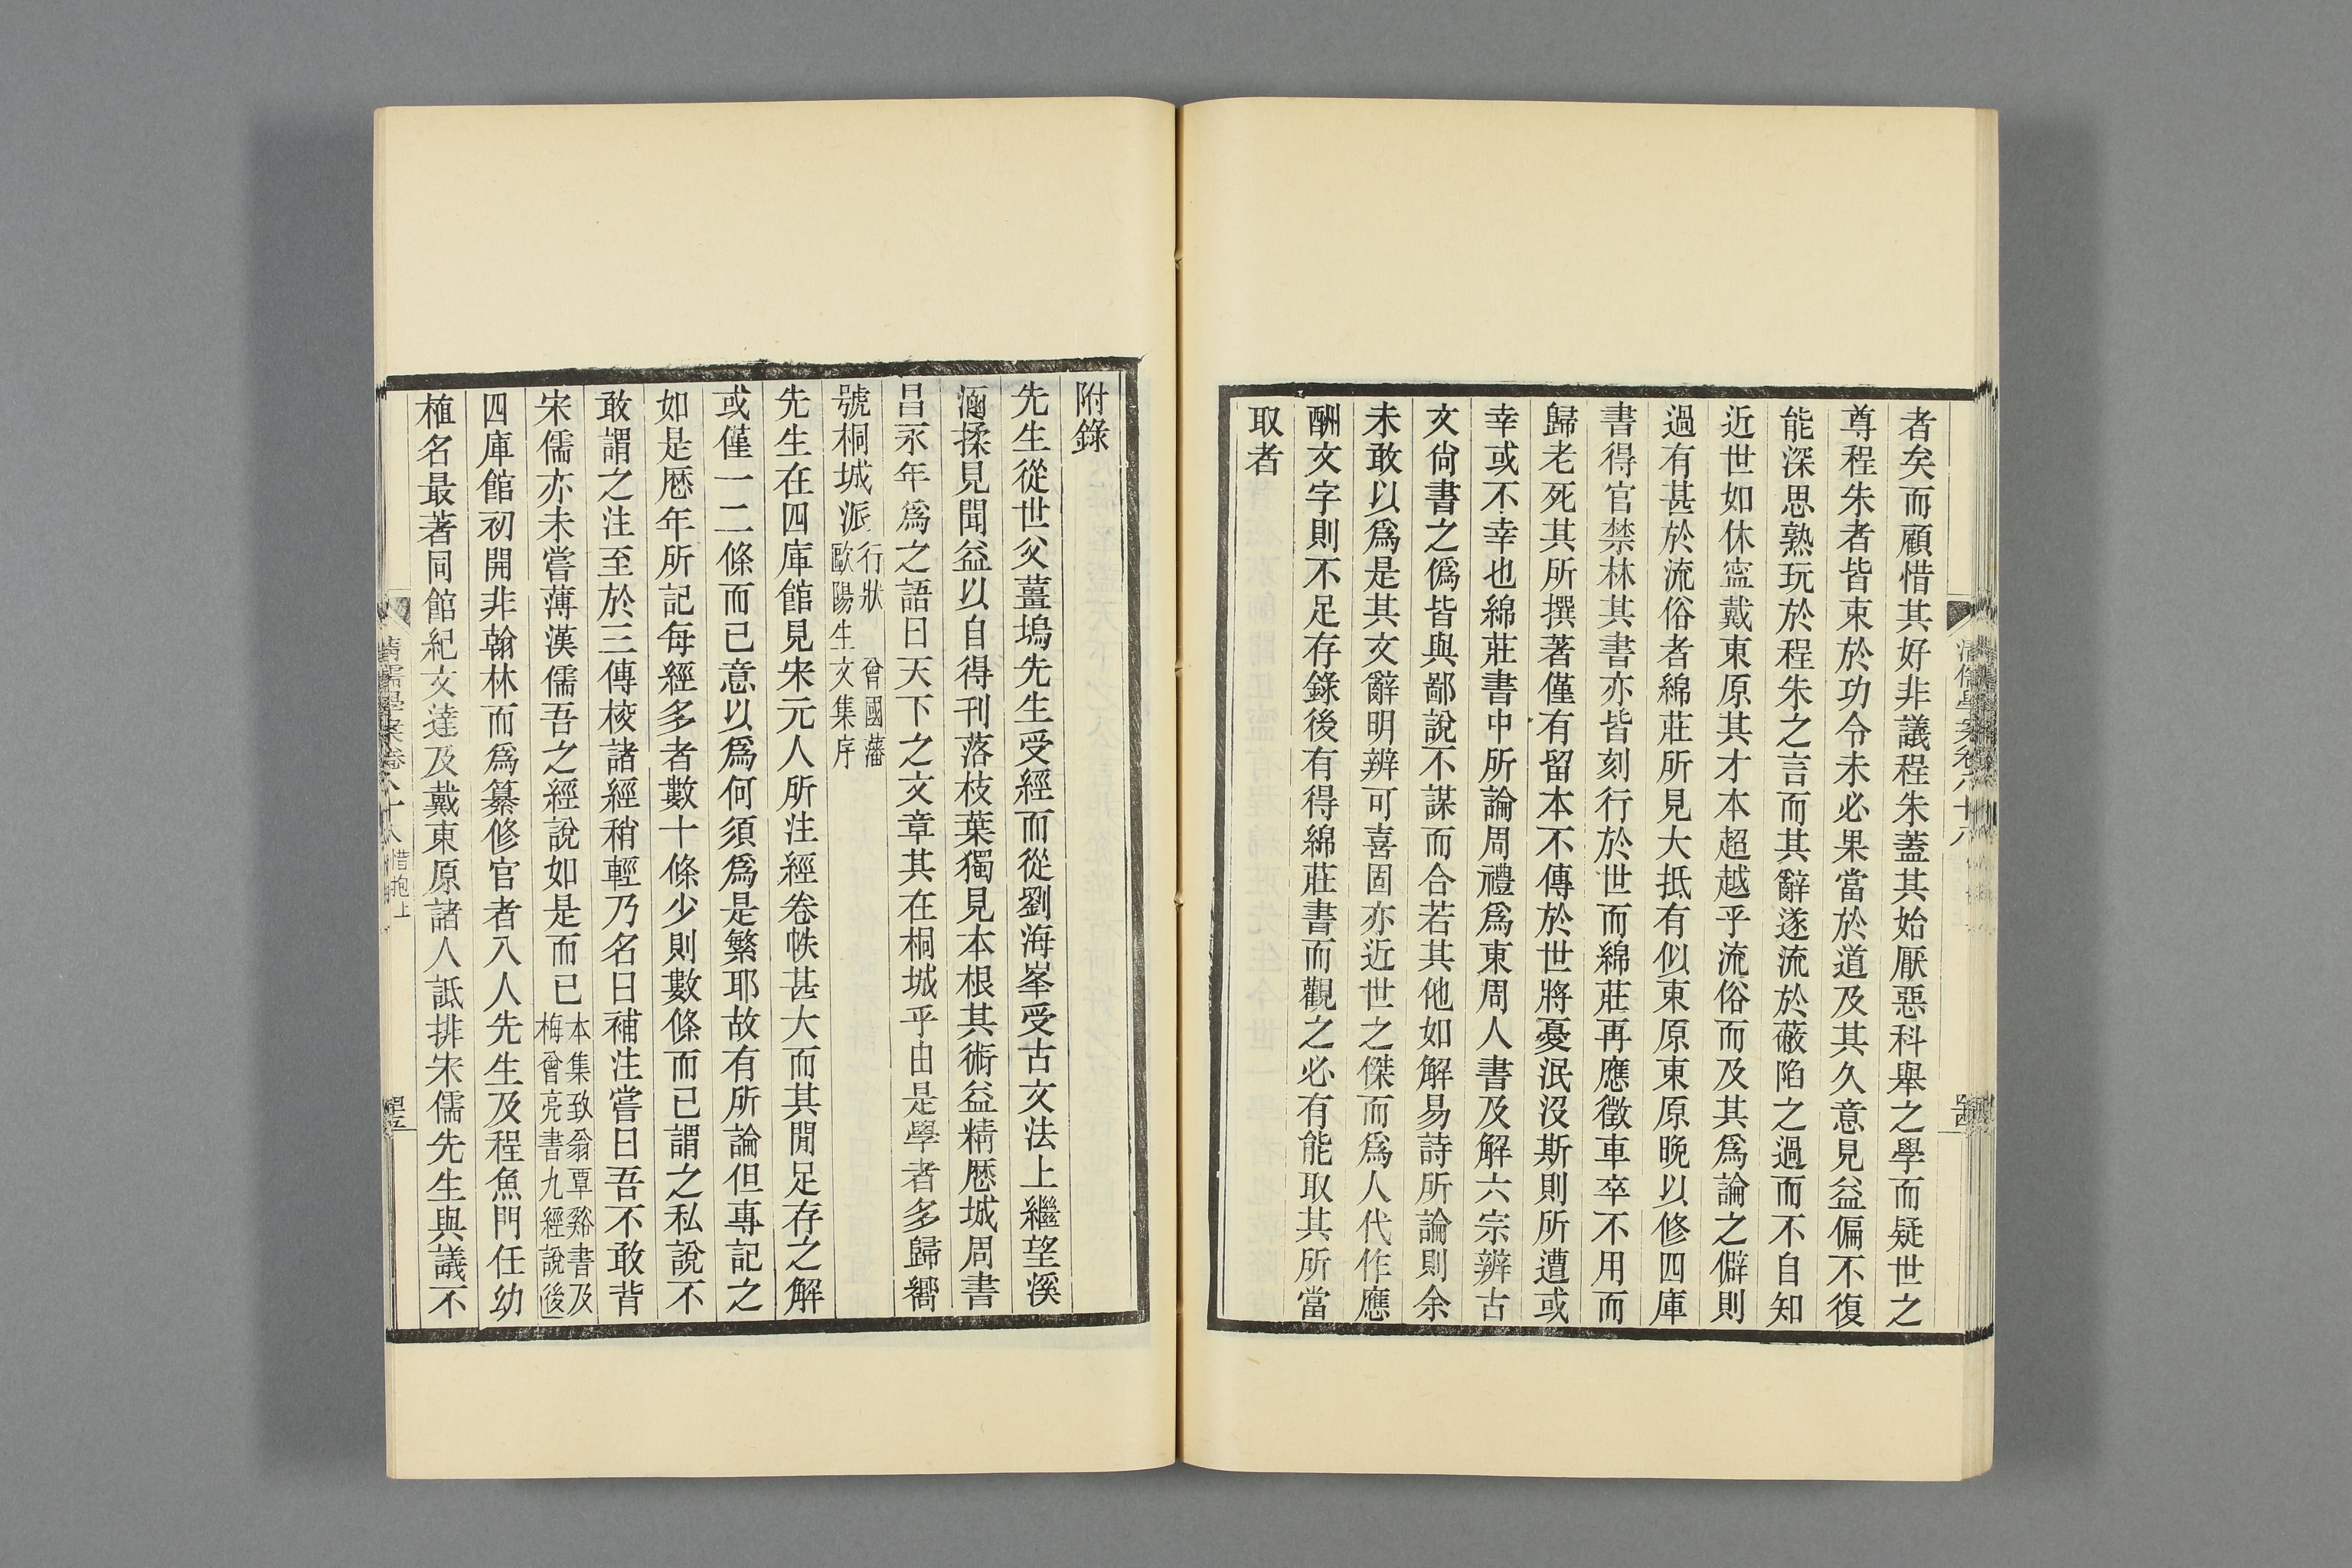 者矣而顧惜其好非議程朱蓋其始厭惡科舉之學而疑世之
尊程朱者皆束於功令未必果當於道及其久意見益偏不復
能深思熟玩於程朱之言而其辭遂流於蔽陷之過而不自知
近世如休寍戴東原其才本超越乎流俗而及其爲論之僻則
過有甚於流俗者綿莊所見大抵有似東原東原晚以修四庫
書得官禁林其書亦皆刻行於世而綿莊再應徵車卒不用而
歸老死其所撰著僅有留本不傳於世將憂泯沒斯則所遭或
幸或不幸也綿莊書中所論周禮爲東周人書及解六宗辨古
文尚書之僞皆與鄙說不謀而合若其他如解易詩所論則余
未敢以爲是其文辭明辨可喜固亦近世之傑而爲人代作應
酬文字則不足存錄後有得綿莊書而觀之必有能取其所當
取者
附錄
先生從世父薑塢先生受經而從劉海峯受古文法上繼望溪
涵揉見聞益以自得刊落枝葉獨見本根其術益精歷城周書
昌永年爲之語曰天下之文章其在桐城乎由是學者多歸嚮
號桐城派行狀 曾國藩
歐陽生文集序
先生在四庫館見宋元人所注經卷帙甚大而其閒足存之解
或僅一二條而已意以爲何須爲是繁耶故有所論但專記之
如是歷年所記每經多者數十條少則數條而已謂之私說不
敢謂之注至於三傳校諸經稍輕乃名曰補注嘗曰吾不敢背
宋儒亦未嘗薄漢儒吾之經說如是而已本集致翁覃谿書及
梅曾亮書九經說後
四庫館初開非翰林而爲纂修官者八人先生及程魚門任幼
植名最著同館紀文達及戴東原諸人詆排宋儒先生與議不
清儒學案卷八十八 惜抱上